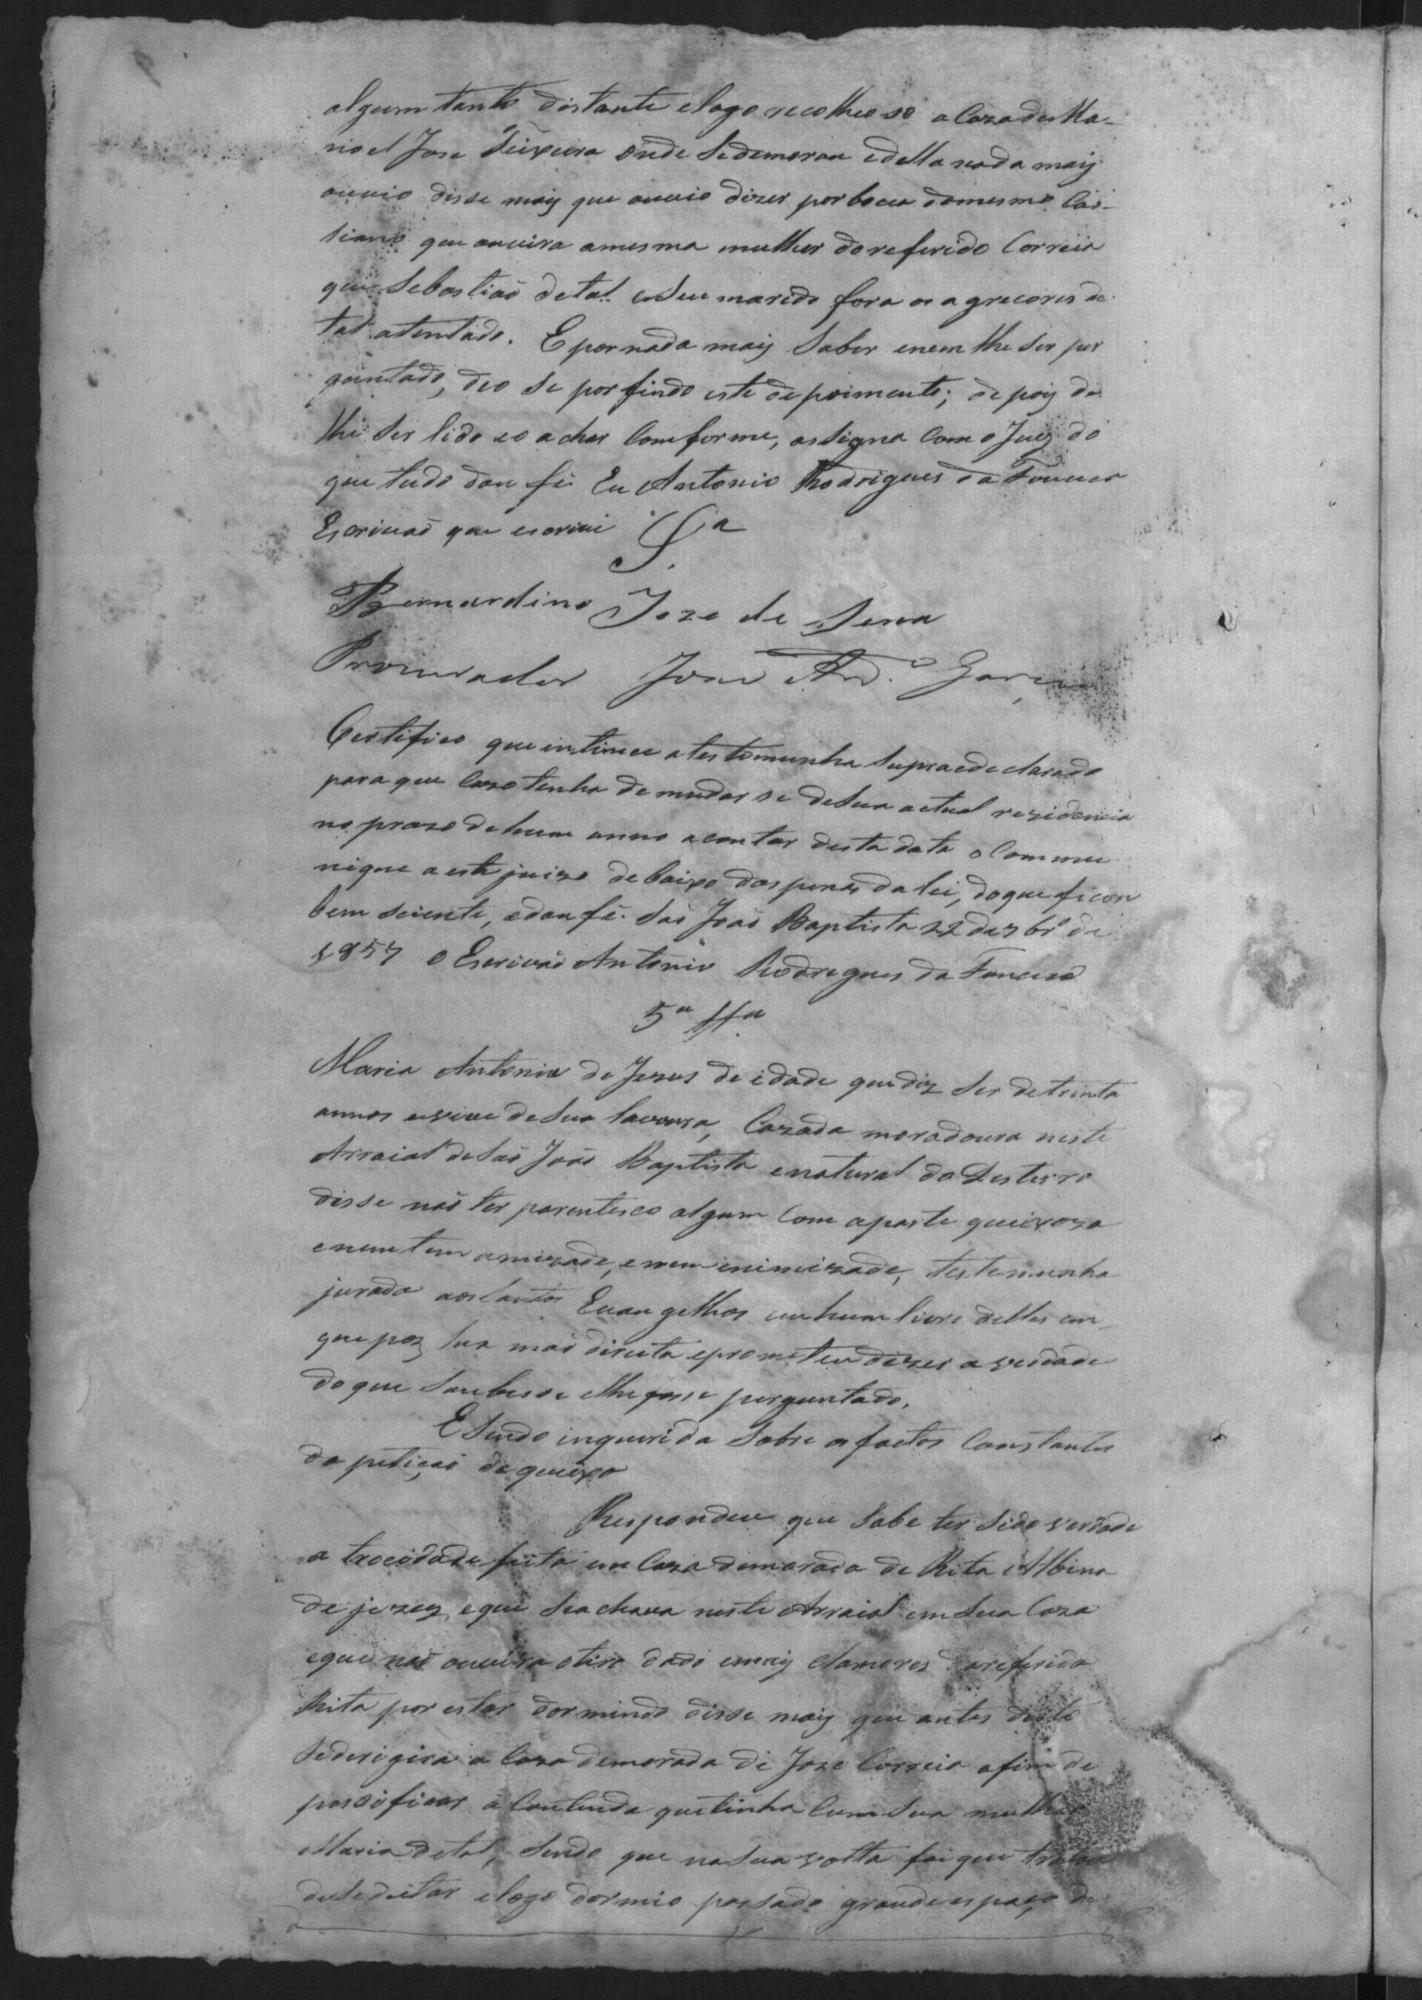 algum tanto distante elogo recolheo se a Caza de Ma-
noel Jose Teixeira onde Sedemorou edella nada maiz
ouvio disse maiz que ouvio dizer por boca domesmo Cas-
siano que ouvira amesma mulher do referido Correia
que Sebastiaõ detal eseu marido fora os agrecores de
tal atentado. Epornada maiz Saber enem lhe Ser per
guntado, deo Se por findo este depoimento; depoiz de
lhe Ser lido eo achar Comforme, assigna Com o Juiz do
que tudo dou fé Eu Antonio Rodrigues da Fonceca
Escrivaõ que escrivi Sª
S.
Bernardino Joze de Sena
Procurador Jose Antº Garcia
Certifico que intimei a testemunha Supraedeclarado
para que Cazo tenha demudar se deSua actual rezidencia
no prazo dehum anno acontar desta data o Commu
nique a este juizo debaixo das penas da lei, doque ficou
bem sciente, edou fé. Saõ Joaõ Baptista 22 de 7br.º de
1857 O Escrivaõ Antonio Rodrigues da Fonceca
5ª Ttª
Maria Antonia de Jezus de idade que diz Ser detrinta
annos evive deSua lavoura, Cazada moradoura neste
Arraial deSaõ Joaõ Baptista enatural do Desterro
disse naõ ter parentesco algum Com aparte queixoza
enem tem amizade, enem inimizade, testemunha
jurada aosSantos Evangelhos em hum livro delles em
que poz Sua maõ direita eprometeu dizer a verdade
do que Soubesse elhe fosse perguntado.
ESendo inquerida Sobre os factos Constantes
da petiçaõ de queixa
Respondeu que Sabe ter Sido verdade
a trocidade feita em Caza demorada de Rita Albina
de jezuz, eque Seachava neste Arraial em Sua Caza
eque naõ ouvira otiro dado emaiz clamores dareferida
Rita por estar dormindo disse maiz que antes deste
Sederigira a Caza demorada de Joze Correia afim de
passificar a Contenda que tinha Com Sua mulher
Maria detal, Sendo que naSua volta foi que tratou
deSedeitar elogo dormio passado grande espaço de